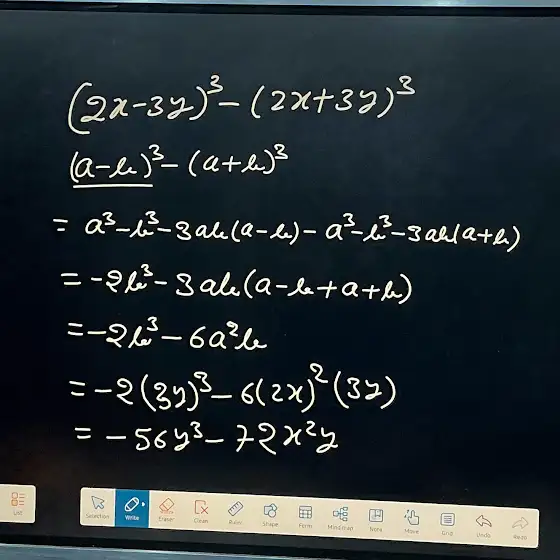 (2x-3y)³-(2x+3y)³
(a-b)³-(a+b)³
= a³-b³-3ab(a-b)-a³-b³-3ab(a+b)
=-2b³-3ab(a-b+a+b)
=-2b³-6a²b
=-2(3y)³-6(2x)²(3y)
= -56y³-72x²y
List
Selection Write Eraser Clean Ruler Shape Form Mind map Note Move Grid Undo Redo